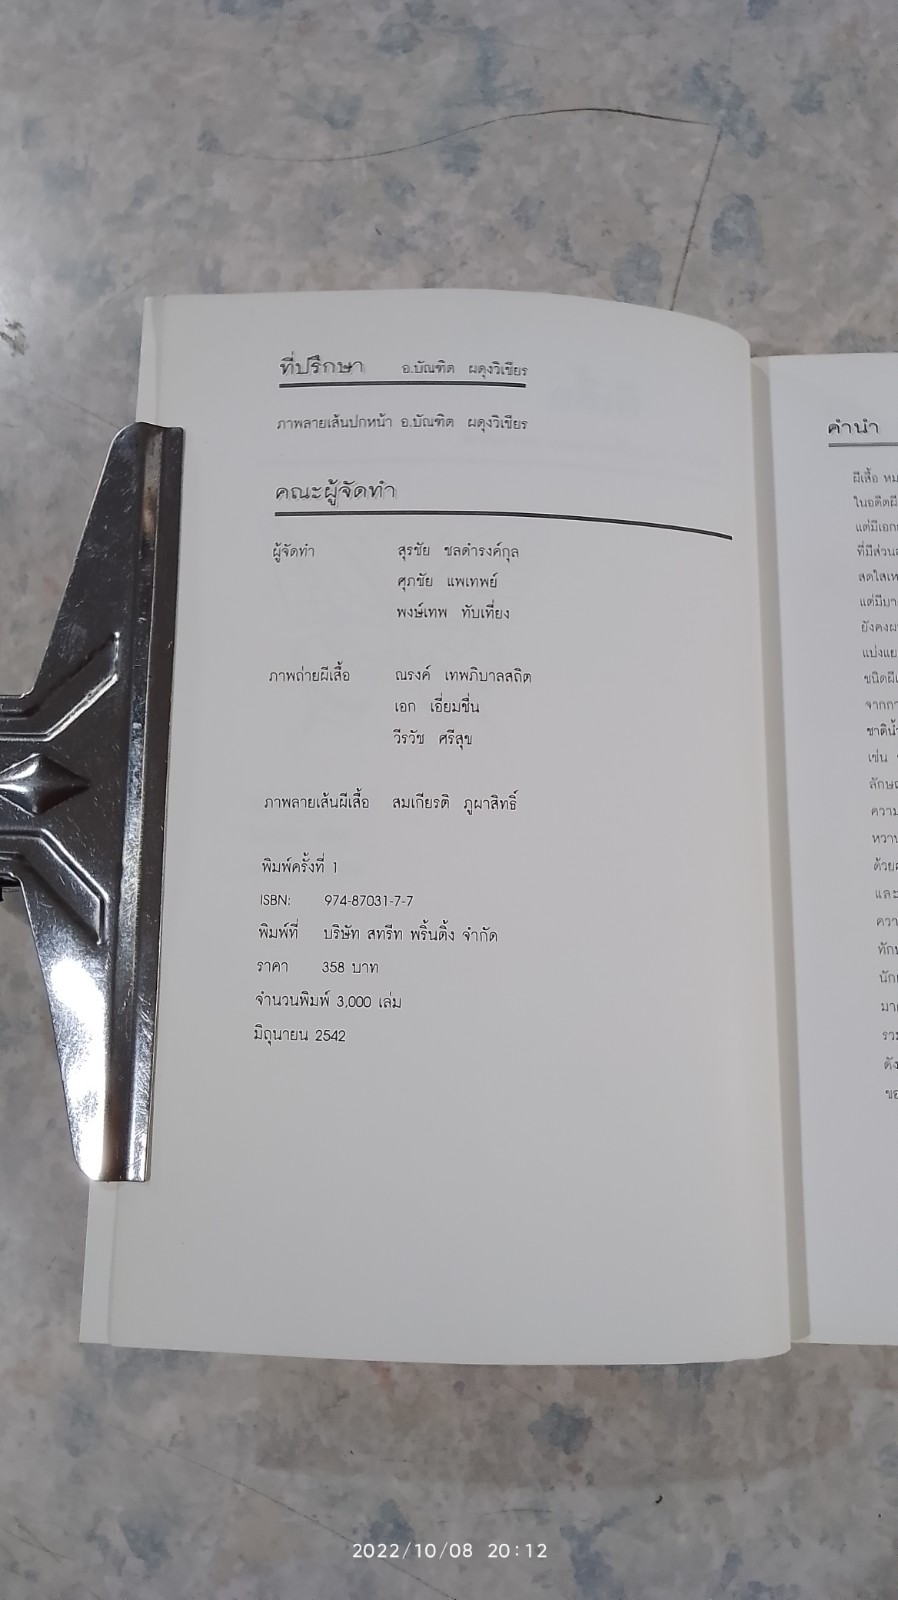 ที่ปรึกษา อ.บัณฑิต ผดุงวิเชียร
ภาพลายเส้นปกหน้า อ.บัณฑิต ผดุงวิเชียร
คณะผู้จัดทำ
ผู้จัดทำ สุรชัย ชลดำรงค์กุล
ศุภชัย แพเทพย์
พงษ์เทพ ทับเที่ยง
ภาพถ่ายผีเสื้อ ณรงค์ เทพภิบาลสถิต
เอก เอี่ยมชื่น
วีรวัช ศรีสุข
ภาพลายเส้นผีเสื้อ สมเกียรติ ภูผาสิทธิ์
พิมพ์ครั้งที่ 1
ISBN: 974-87031-7-7
พิมพ์ที่ บริษัท สทรีท พริ้นติ้ง จำกัด
ราคา 358 บาท
จำนวนพิมพ์ 3,000 เล่ม
มิถุนายน 2542
คำนำ
ผีเสื้อ
ในอดีตผี
แต่มีเอก
ที่มีส่วน
สดใส
แต่มีบา
ยังคง
แบ่งแย
ชนิดผี
จากกา
ชาติน้ำ
เช่น
ลักษณ
ความ
หวาน
ด้วย
และ
ควา
ทัก
นัก
มา
รว
ดัง
ขอ
2022/10/08 20:12